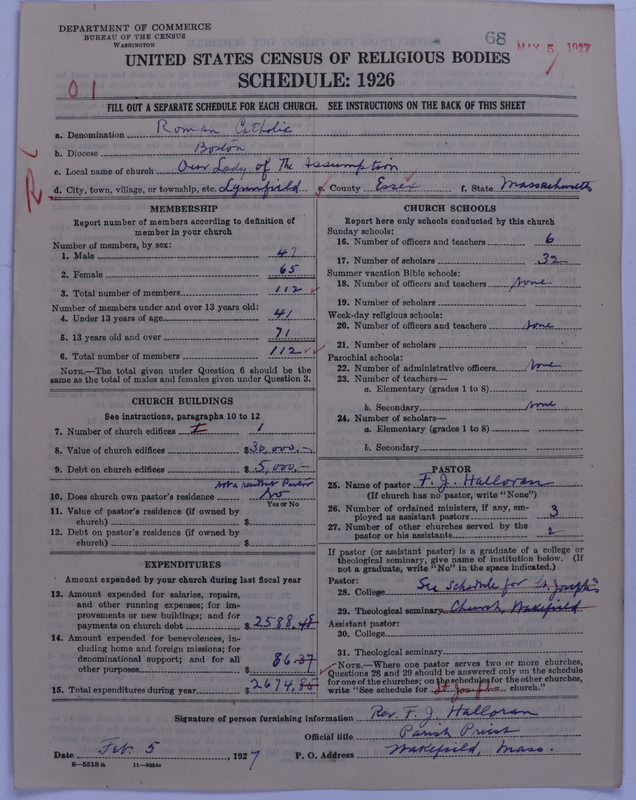 DEPARTMENT OF COMMERCE
BUREAU OF THE CENSUS
WASHINGTON
68
MAY 5 1927
UNITED STATES CENSUS OF RELIGIOUS BODIES
SCHEDULE: 1926
01
FILL OUT A SEPARATE SCHEDULE FOR EACH CHURCH. SEE INSTRUCTIONS ON THE BACK OF THIS SHEET
a. Denomination Roman Catholic
b. Diocese Boston
c. Local name of church Our Lady of The Assumption
R
d. City, town, village, or township, etc. Lynnfield e. County Essex f. State Massachusetts
MEMBERSHIP
Report number of members according to definition of
member in your church
Number of members, by sex:
1. Male 47
2. Female 65
3. Total number of members 112
Number of members under and over 13 years old:
4. Under 13 years of age 41
5. 13 years old and over 71
6. Total number of members 112
NOTE.—The total given under Question 6 should be
same as the total of males and females given under Question 3.
CHURCH BUILDINGS
See instructions, paragraphs 10 to 12
7. Number of church edifices I 1
8. Value of church edifices $30,000.—
9. Debt on church edifices $5,000.—
not a resident Pastor
10. Does church own pastor's residence No
Yes or No
11. Value of pastor's residence (if owned by
church) $
12. Debt on pastor's residence (if owned by
church) $
EXPENDITURES
Amount expended by your church during last fiscal year
13. Amount expended for salaries, repairs,
and other running expenses; for im-
provements or new buildings; and for
payments on church debt $2588.48
14. Amount expended for benevolences, in-
cluding home and foreign missions; for
denominational support; and for all
other purposes $ 86.37
15. Total expenditures during year $2674.85
CHURCH SCHOOLS
Report here only schools conducted by this church
Sunday schools:
16. Number of officers and teachers 6
17. Number of scholars 32
Summer vacation Bible schools:
18. Number of officers and teachers none
19. Number of scholars
Week-day religious schools:
20. Number of officers and teachers none
21. Number of scholars
Parochial schools:
22. Number of administrative officers none
23. Number of teachers—
a. Elementary (grades 1 to 8)
b. Secondary none
24. Number of scholars—
a. Elementary (grades 1 to 8)
b. Secondary
PASTOR
25. Name of pastor F. J. Halloran
(If church has no pastor, write "None")
26. Number of ordained ministers, if any, em-
ployed as assistant pastors 3
27. Number of other churches served by the
pastor or his assistants 2
If pastor (or assistant pastor) is a graduate of a college or
theological seminary, give name of institution below. (If
not a graduate, write "No" in the space indicated.)
Pastor:
28. College See Schedule for St. Joseph's
29. Theological seminary Church, Wakefield
Assistant pastor:
30. College
31. Theological seminary
NOTE.—Where one pastor serves two or more churches,
Questions 28 and 29 should be answered only on the schedule
for one of the churches; on the schedules for the other churches,
write "See schedule for St Josephs church."
Signature of person furnishing information Rev. F. J. Halloran
Official title Parish Priest
Date Feb. 5, 1927 P. O. Address Wakefield, Mass.
8—5518 a 11—9054a